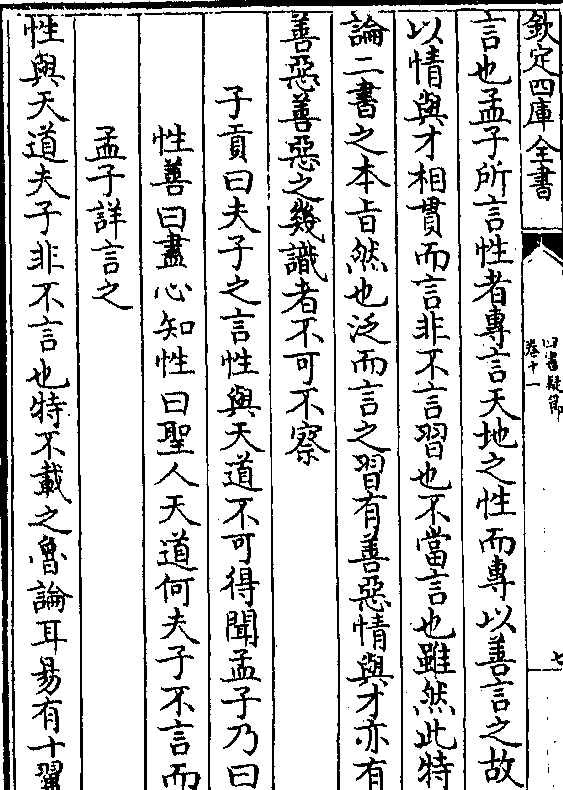 欽定四庫全書
四書疑節
卷十一
七
言也孟子所言性者專言天地之性而專以善言之故
以情與才相貫而言非不言習也不當言也雖然此特
論二書之本旨然也泛而言之習有善惡情與才亦有
善惡善惡之幾識者不可不察
子貢曰夫子之言性與天道不可得聞孟子乃曰
性善曰盡心知性曰聖人天道何夫子不言而
孟子詳言之
性與天道夫子非不言也特不載之魯論耳易有十翼